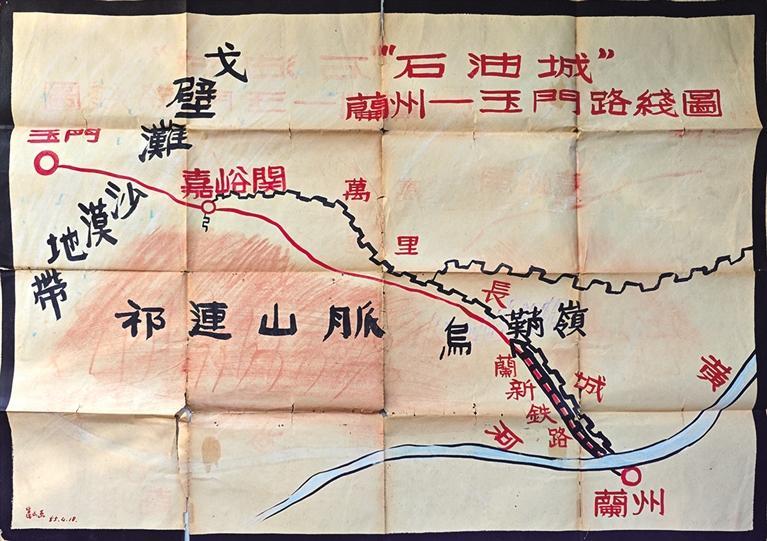 “石油城”
蘭州—玉門路綫圖
戈壁灘
玉門
嘉峪関
沙漠地帶
萬里長城
祁連山脈
烏鞘嶺
蘭新鉄路
黄河
蘭州
55.4.18.